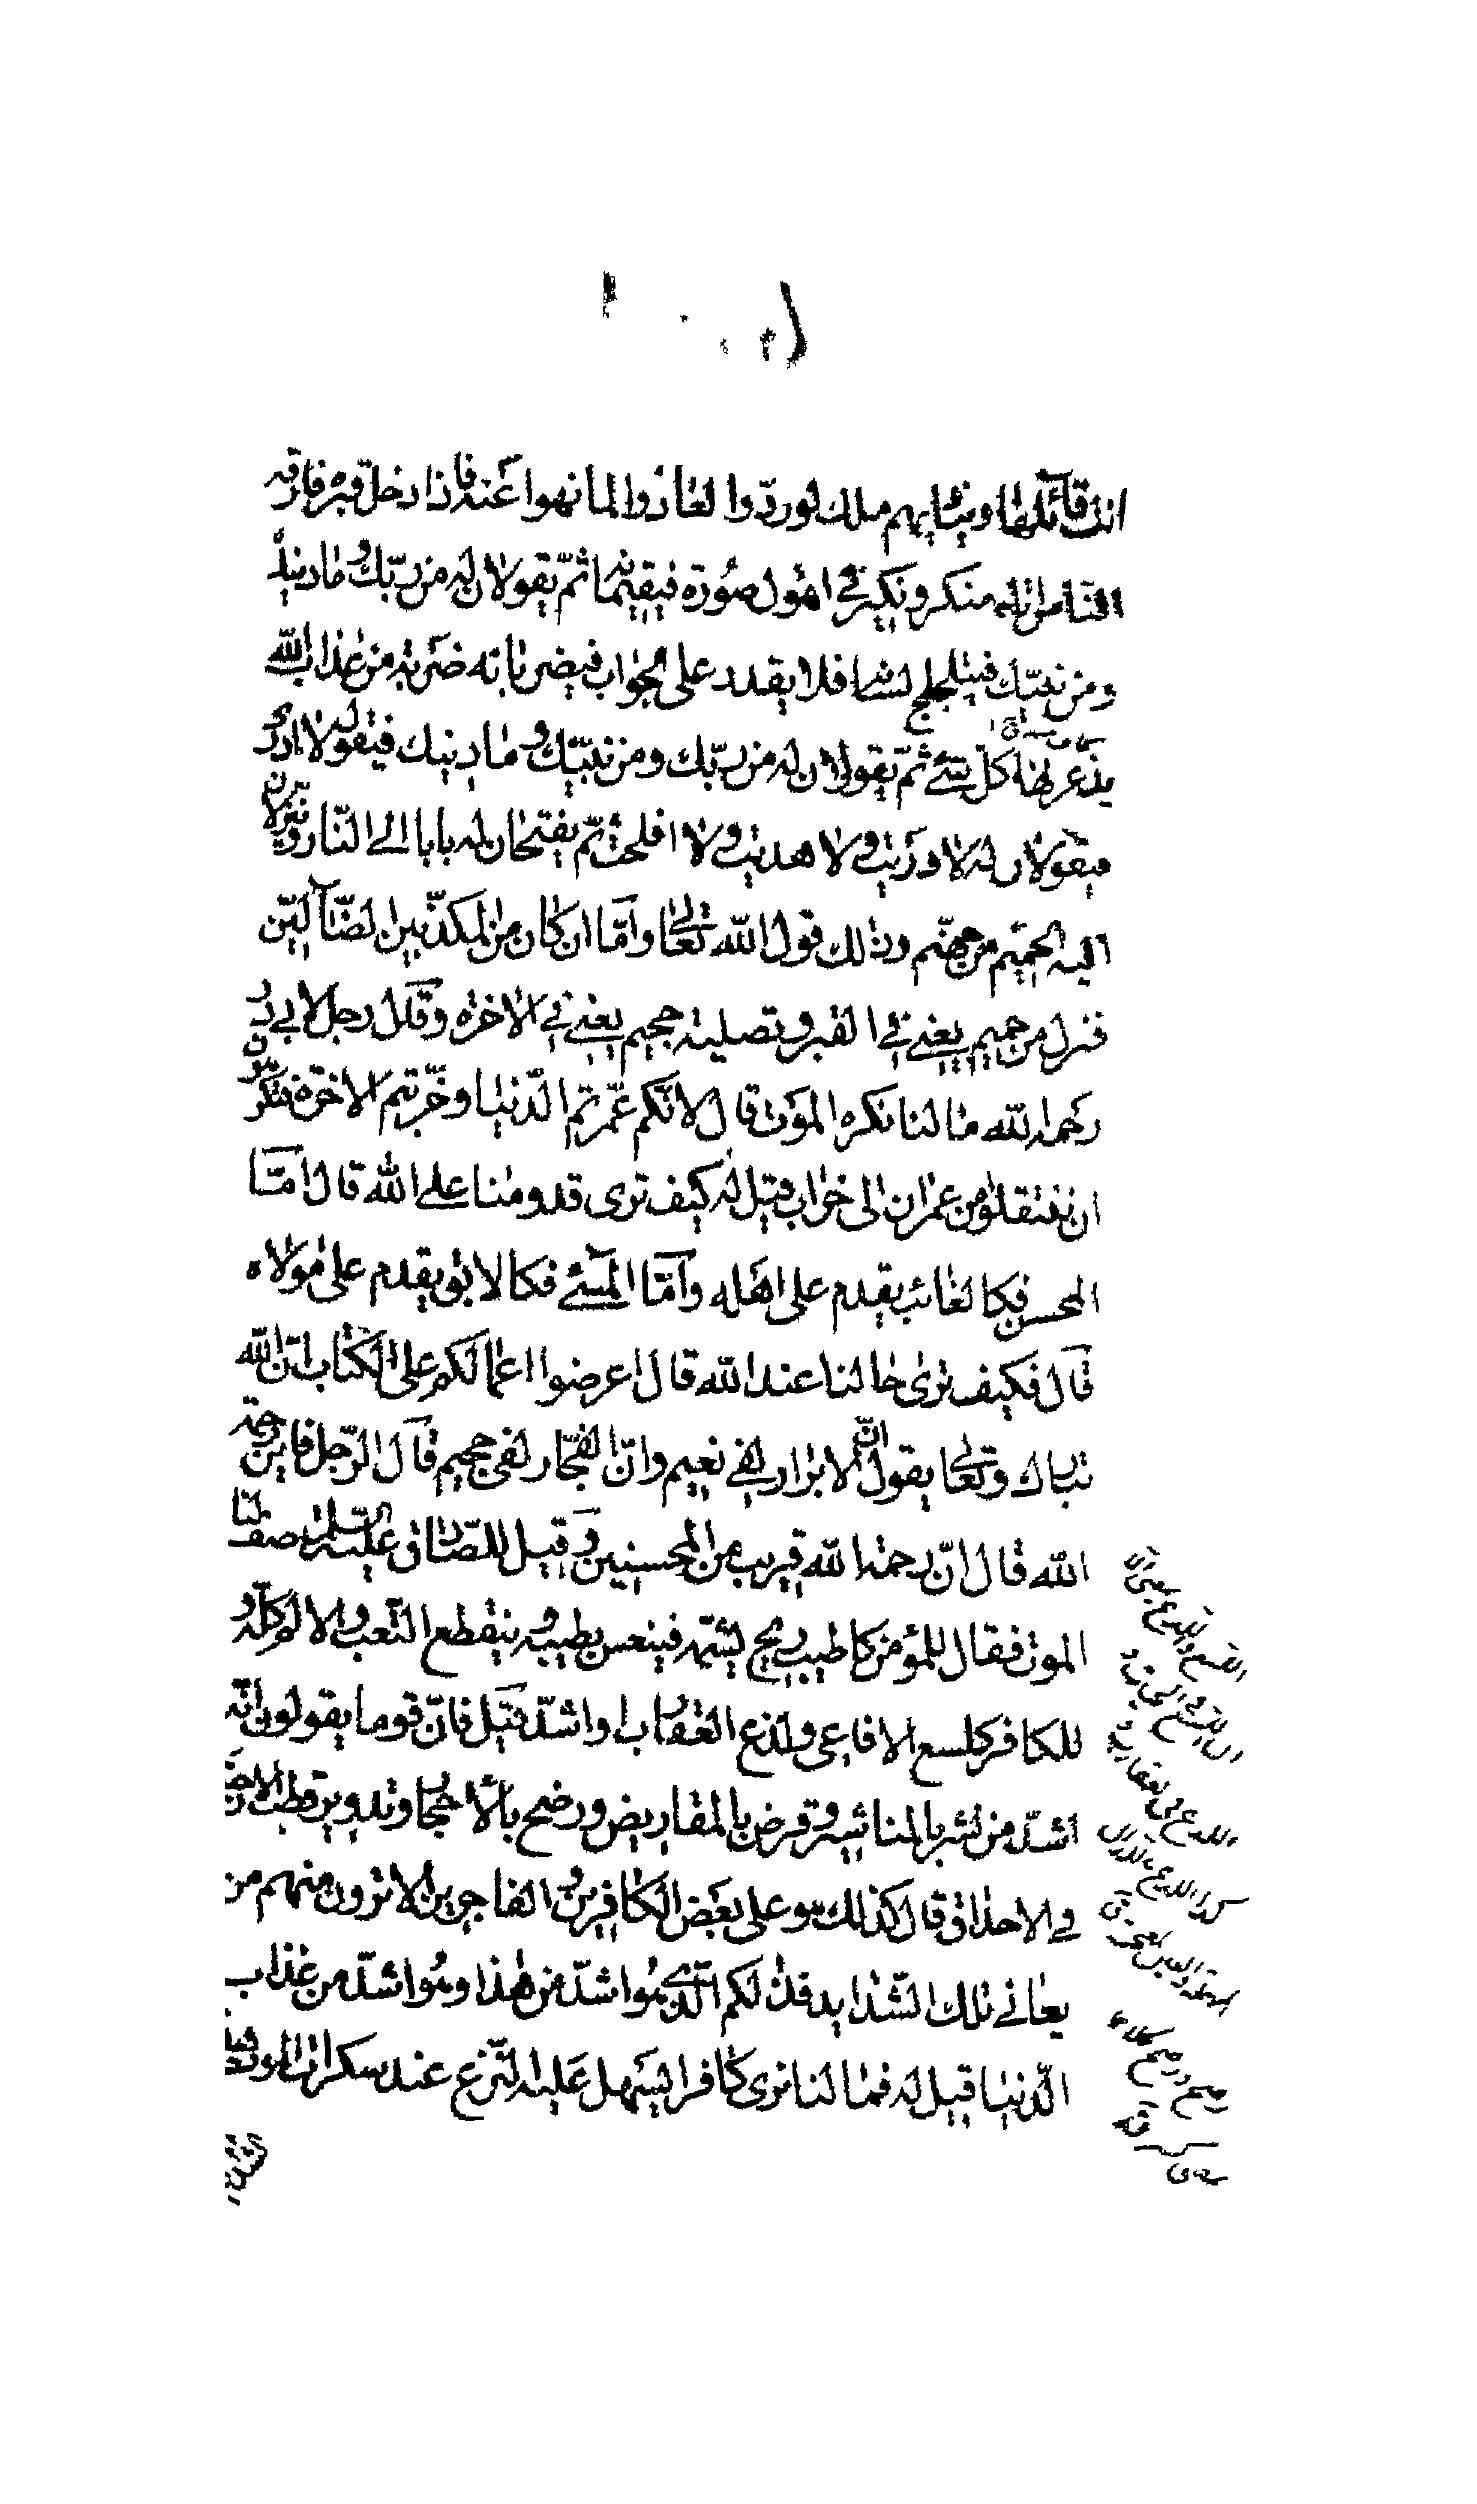 انك قائلها وبنيابيهم ملك لو ردّوا لعادوا لما نهوا عنه فاذا دخل قبره فارقه
الناس اتاه منكر ونكير في اهول صورة فيقيمانه ثمّ يقولان له من ربّك وما دينك
ومن نبيّك فيتلجلج لسانه فلا يقدر على الجواب فيضربانه ضربة من عذاب الله
يذعر لها كلّ شئ ثمّ يقولان له من ربّك ومن نبيّك وما دينك فيقول لا ادري
فيقولان له لا دريت ولا هديت ولا افلحت ثمّ يفتحان له بابا الى النّار وينزلان
اليه الحميم من جهنّم وذلك قول الله تعالى وامّا ان كان من المكذّبين الضّآلّين
فنزل من حميم يعني في القبر وتصلية جحيم يعني في الاخرة وقال رجل لابي ذر
رحمه الله ما لنا نكره الموت قال لانّكم عمّرتم الدّنيا وخرّبتم الاخرة فتكرهون
ان تنتقلوا من عمران الى خراب وقيل له كيف ترى قدومنا على الله قال امّا
المحسن فكالغائب يقدم على اهله وامّا المسئ فكالابق يقدم على مولاه
قال فكيف ترى حالنا عند الله قال اعرضوا اعمالكم على الكتاب انّ الله
تبارك وتعالى يقول انّ الابرار لفي نعيم وانّ الفجّار لفي جحيم قال الرّجل فاين رحمة
الله قال انّ رحمة الله قريب من المحسنين وقيل للصّادق عليه السلم صف لنا
الموت فقال للمؤمن كاطيب ريح يشمّه فينعس بطيبه وينقطع التّعب والالم كلّه و
للكافر كلسع الافاعي ولدغ العقارب او اشدّ قيل فانّ قوما يقولون انّه
اشدّ من نشر بالمناشير وقرض بالمقاريض ورضخ بالاحجار وتدوير قطب الارحية
في الاحداق قال كذلك هو على بعض الكافرين والفاجرين الا ترون منهم من
يعاني تلك الشّدايد فذلكم الّذي هو اشدّ من هذا وهو اشدّ من عذاب
الدّنيا قيل له فما لنا نرى كافرا يسهل عليه النّزع عند سكرات الموت